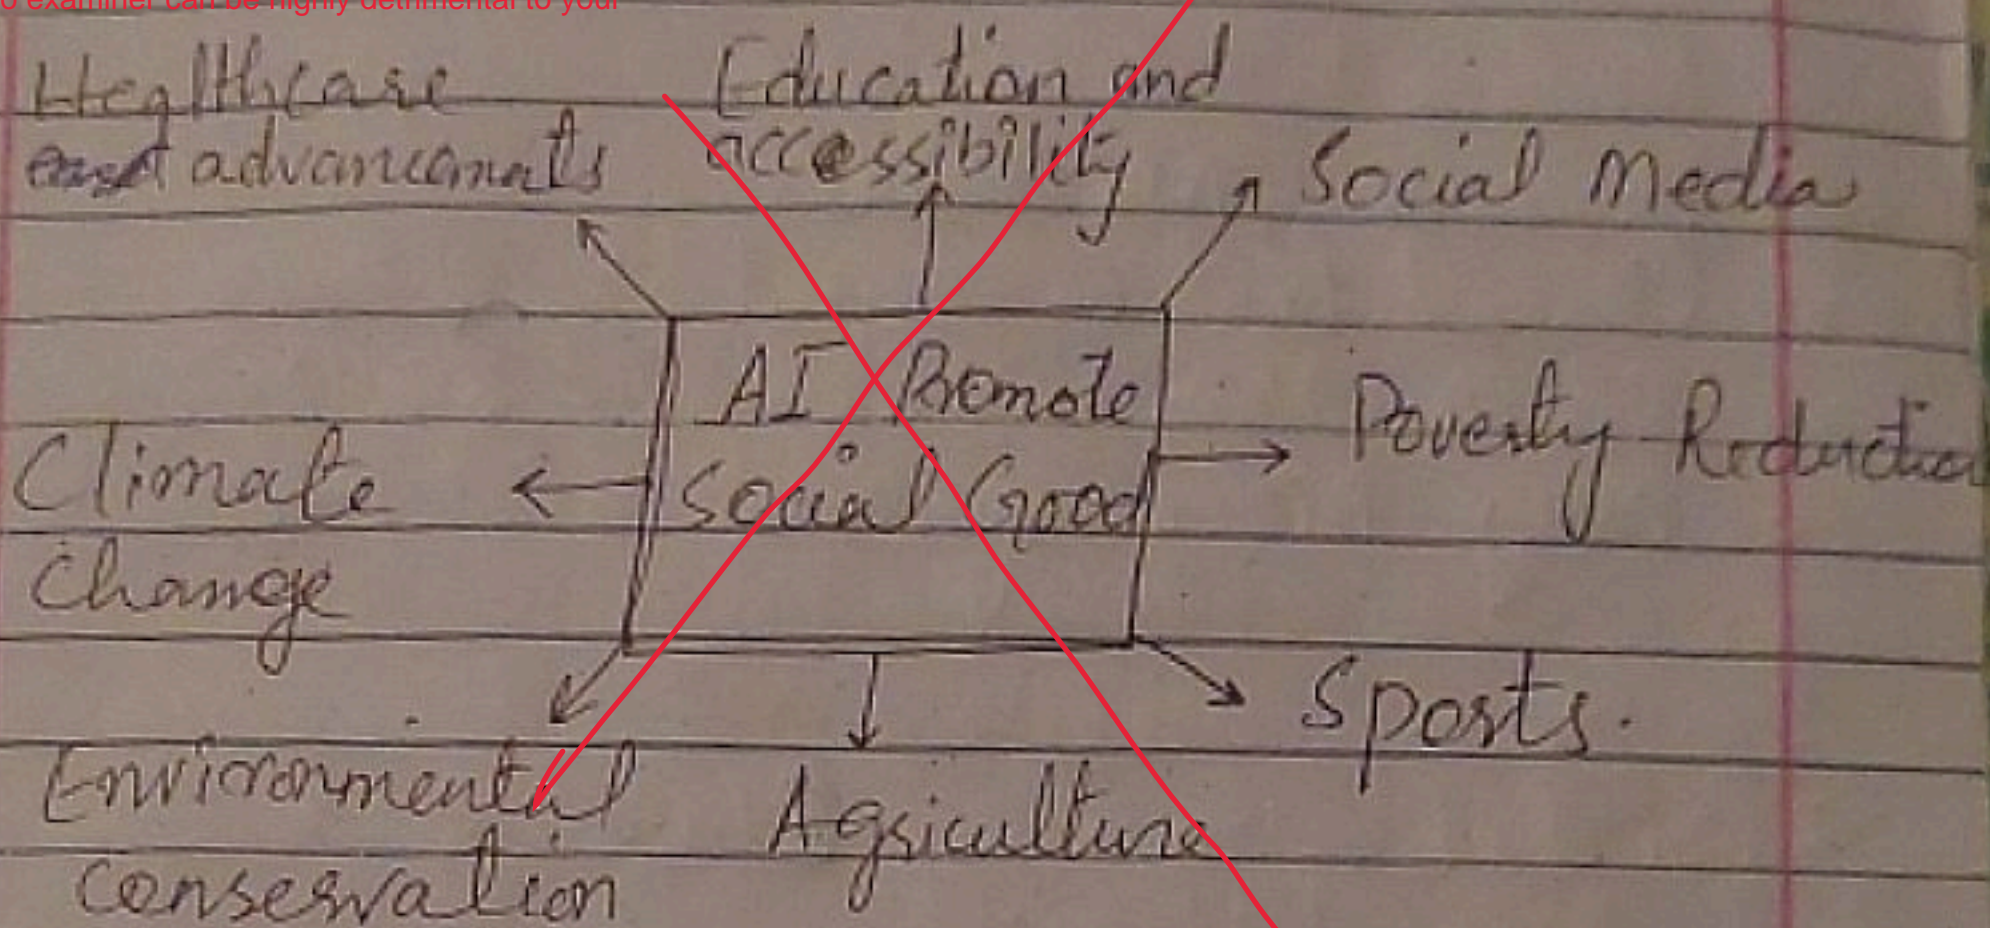 o examiner can be highly detrimental to your
Healthcare
advancements
Education and
accessibility
Social Media
AI Promote
Social Good
Climate
Change
Poverty Reduction
Sports.
Environmental
Conservation
Agriculture